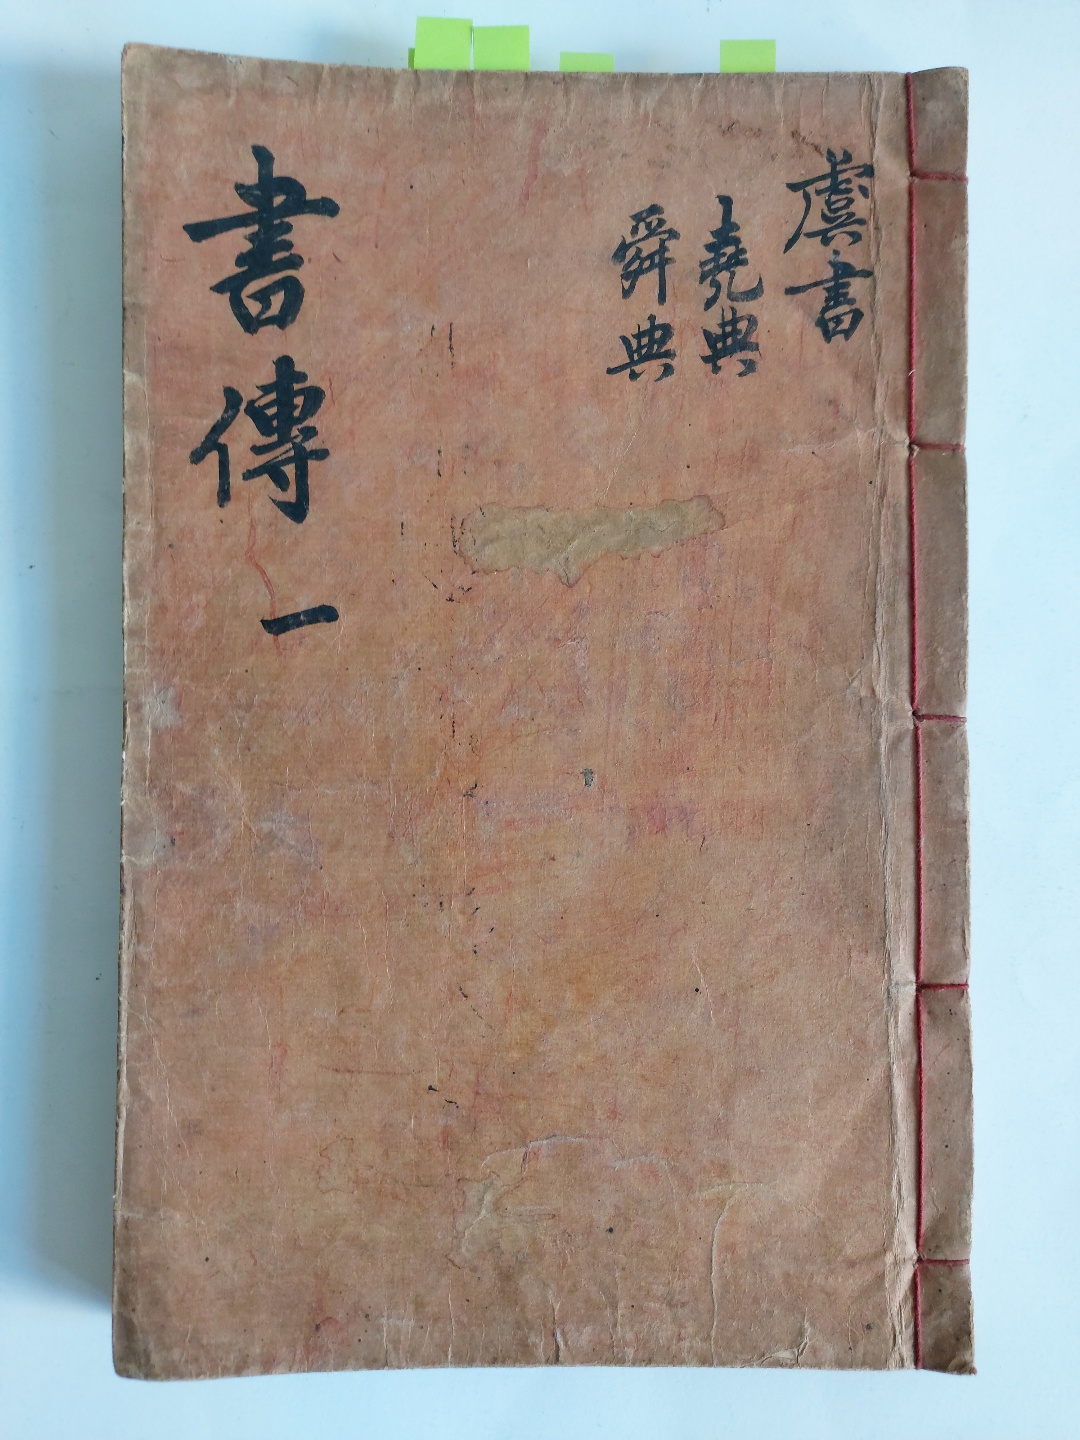 虞書
堯典
舜典
書傳 一